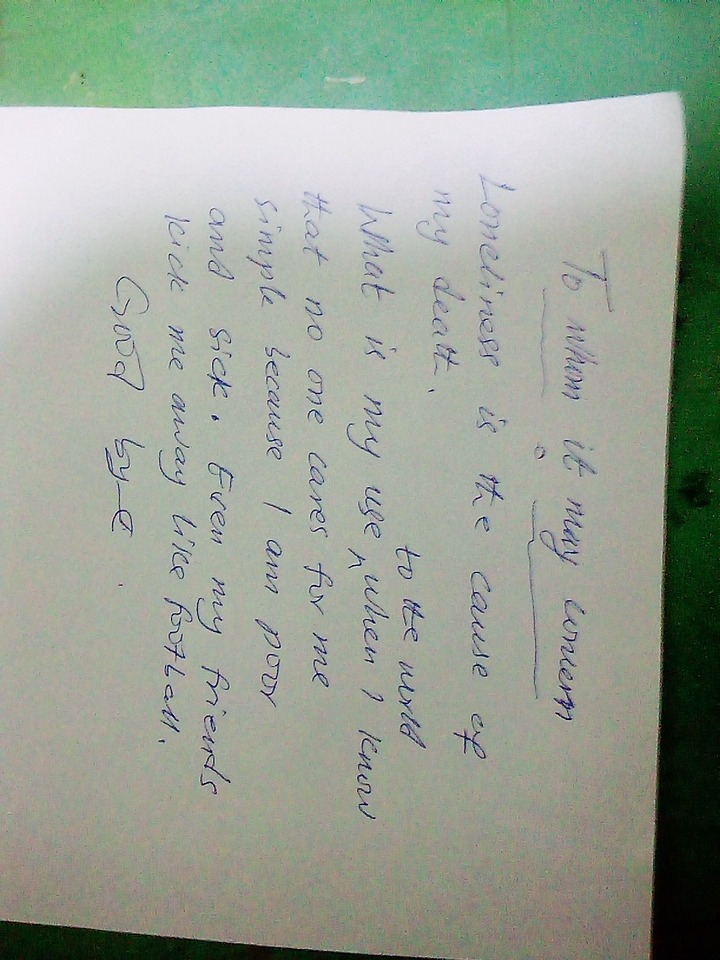 To whom it may concern
Loneliness is the cause of
my death.
to the world
What is my use ^ when I know
that no one cares for me
simple because I am poor
and sick. Even my friends
kick me away like football.
Good bye.